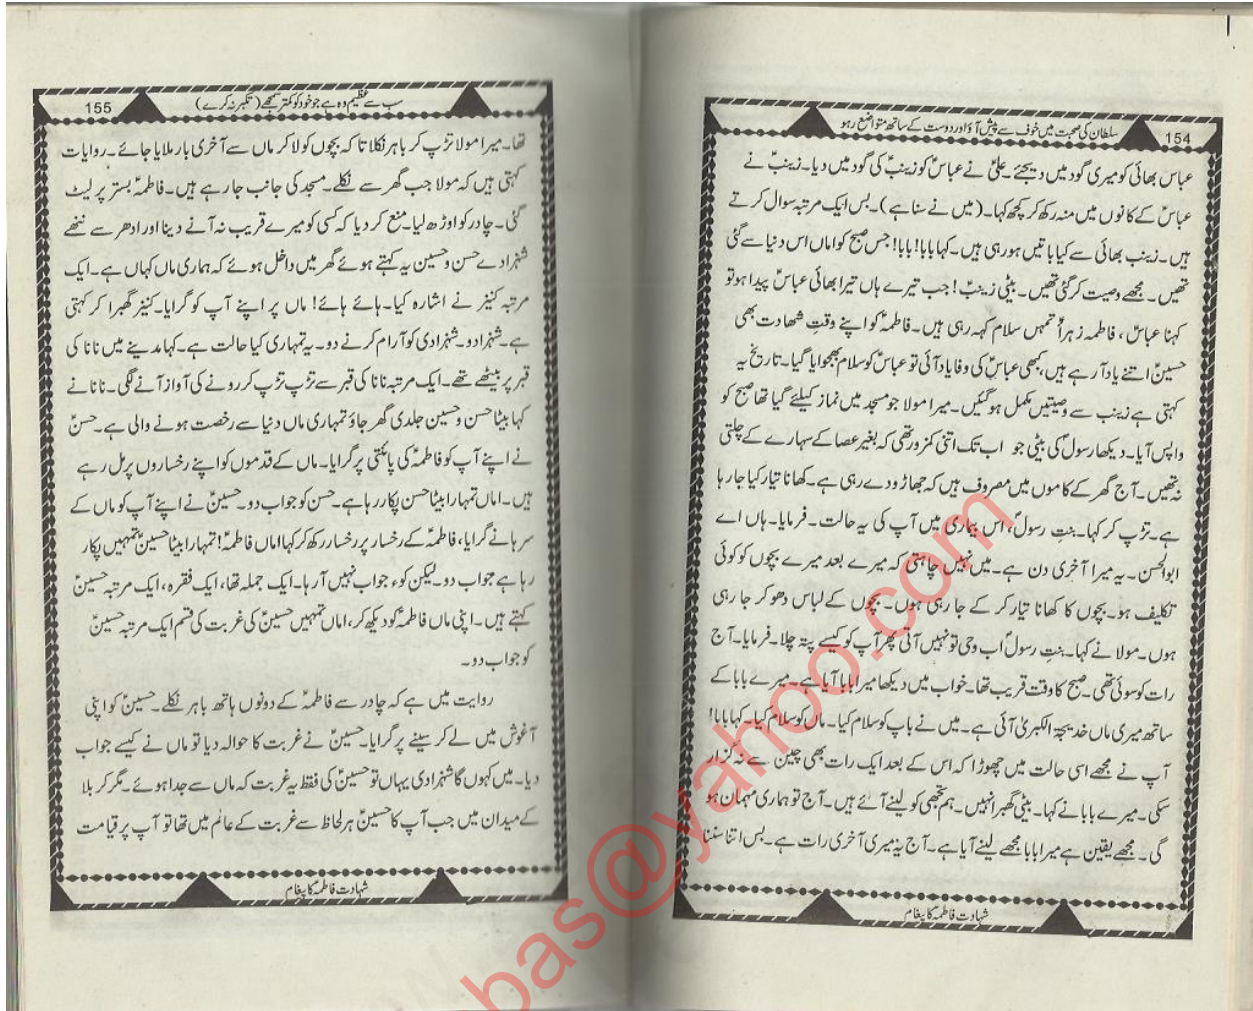 سلطان کی صحبت میں خوف سے پیش آؤ اور دوست کے ساتھ متواضع رہو
154
عباس بھائی کو میری گود میں دیجئے۔ علیؑ نے عباسؑ کو زینبؑ کی گود میں دیا۔ زینبؑ نے
عباسؑ کے کانوں میں منہ رکھ کر کچھ کہا۔ (میں نے سنا ہے)۔ بس ایک مرتبہ سوال کرتے
ہیں۔ زینب بھائی سے کیا باتیں ہو رہی ہیں۔ کہا بابا! بابا! جس صبح کو اماں اس دنیا سے گئی
تھیں۔ مجھے وصیت کر گئی تھیں۔ بیٹی زینبؑ! جب تیرے ہاں تیرا بھائی عباسؑ پیدا ہو تو
کہنا عباسؑ، فاطمہ زہراؑ تمہں سلام کہہ رہی ہیں۔ فاطمہؑ کو اپنے وقتِ شھادت بھی
حسینؑ اتنے یاد آ رہے ہیں، کبھی عباسؑ کی وفا یاد آئی تو عباسؑ کو سلام بھجوایا گیا۔ تاریخ یہ
کہتی ہے زینب سے وصیتیں مکمل ہو گئیں۔ میرا مولا جو مسجد میں نماز کیلئے گیا تھا صبح کو
واپس آیا۔ دیکھا رسولؐ کی بیٹی جو اب تک اتنی کمزور تھی کہ بغیر عصا کے سہارے کے چلتی
نہ تھیں۔ آج گھر کے کاموں میں مصروف ہیں کہ جھاڑو دے رہی ہے۔ کھانا تیار کیا جا رہا
ہے۔ تڑپ کر کہا۔ بنتِ رسولؐ، اس بیماری میں آپ کی یہ حالت۔ فرمایا۔ ہاں اے
ابوالحسن۔ یہ میرا آخری دن ہے۔ میں نہیں چاہتی کہ میرے بعد میرے بچوں کو کوئی
تکلیف ہو۔ بچوں کا کھانا تیار کر کے جا رہی ہوں۔ بچوں کے لباس دھو کر جا رہی
ہوں۔ مولا نے کہا۔ بنتِ رسولؐ اب وحی تو نہیں آتی پھر آپ کو کیسے پتہ چلا۔ فرمایا۔ آج
رات کو سوئی تھی۔ صبح کا وقت قریب تھا۔ خواب میں دیکھا میرا بابا آیا ہے۔ میرے بابا کے
ساتھ میری ماں خدیجۃ الکبریٰ آئی ہے۔ میں نے باپ کو سلام کیا۔ ماں کو سلام کیا۔ کہا بابا!
آپ نے مجھے اسی حالت میں چھوڑا کہ اس کے بعد ایک رات بھی چین سے نہ گزار
سکی۔ میرے بابا نے کہا۔ بیٹی گھبرا نہیں۔ ہم تجھی کو لینے آئے ہیں۔ آج تو ہماری مہمان ہو
گی۔ مجھے یقین ہے میرا بابا مجھے لینے آیا ہے۔ آج یہ میری آخری رات ہے۔ بس اتنا سننا
شہادت فاطمہؑ کا پیغام
سب سے عظیم وہ ہے جو خود کو کمتر سمجھے (تکبر نہ کرے)
155
تھا۔ میرا مولا تڑپ کر باہر نکلا تا کہ بچوں کو لا کر ماں سے آخری بار ملایا جائے۔ روایات
کہتی ہیں کہ مولا جب گھر سے نکلے۔ مسجد کی جانب جا رہے ہیں۔ فاطمہؑ بستر پر لیٹ
گئی۔ چادر کو اوڑھ لیا۔ منع کر دیا کہ کسی کو میرے قریب نہ آنے دینا اور ادھر سے ننھے
شہزادے حسن و حسین یہ کہتے ہوئے گھر میں داخل ہوئے کہ ہماری ماں کہاں ہے۔ ایک
مرتبہ کنیز نے اشارہ کیا۔ ہائے ہائے! ماں پر اپنے آپ کو گرایا۔ کنیز گھبرا کر کہتی
ہے۔ شہزادو۔ شہزادی کو آرام کرنے دو۔ یہ تمہاری کیا حالت ہے۔ کہا مدینے میں نانا کی
قبر پر بیٹھے تھے۔ ایک مرتبہ نانا کی قبر سے تڑپ تڑپ کر رونے کی آواز آنے لگی۔ نانا نے
کہا بیٹا حسن و حسین جلدی گھر جاؤ تمہاری ماں دنیا سے رخصت ہونے والی ہے۔ حسنؑ
نے اپنے آپ کو فاطمہؑ کی پائنتی پر گرایا۔ ماں کے قدموں کو اپنے رخساروں پر مل رہے
ہیں۔ اماں تمہارا بیٹا حسن پکار رہا ہے۔ حسن کو جواب دو۔ حسینؑ نے اپنے آپ کو ماں کے
سرہانے گرایا، فاطمہؑ کے رخسار پر رخسار رکھ کر کہا اماں فاطمہؑ! تمہارا بیٹا حسینؑ تمہیں پکار
رہا ہے جواب دو۔ لیکن کوء جواب نہیں آ رہا۔ ایک جملہ تھا، ایک فقرہ، ایک مرتبہ حسینؑ
کہتے ہیں۔ اپنی ماں فاطمہؑ کو دیکھ کر، اماں تمہیں حسینؑ کی غربت کی قسم ایک مرتبہ حسینؑ
کو جواب دو۔
روایت میں ہے کہ چادر سے فاطمہؑ کے دونوں ہاتھ باہر نکلے۔ حسینؑ کو اپنی
آغوش میں لے کر سینے پر گرایا۔ حسینؑ نے غربت کا حوالہ دیا تو ماں نے کیسے جواب
دیا۔ میں کہوں گا شہزادی یہاں تو حسینؑ کی فقط یہ غربت کہ ماں سے جدا ہوئے۔ مگر کربلا
کے میدان میں جب آپ کا حسینؑ ہر لحاظ سے غربت کے عالم میں تھا تو آپ پر قیامت
شہادت فاطمہؑ کا پیغام
bas@yahoo.com